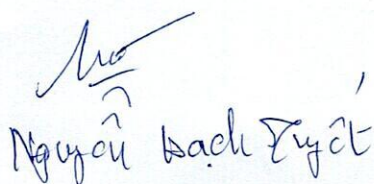 Nguyễn Bạch Tuyết